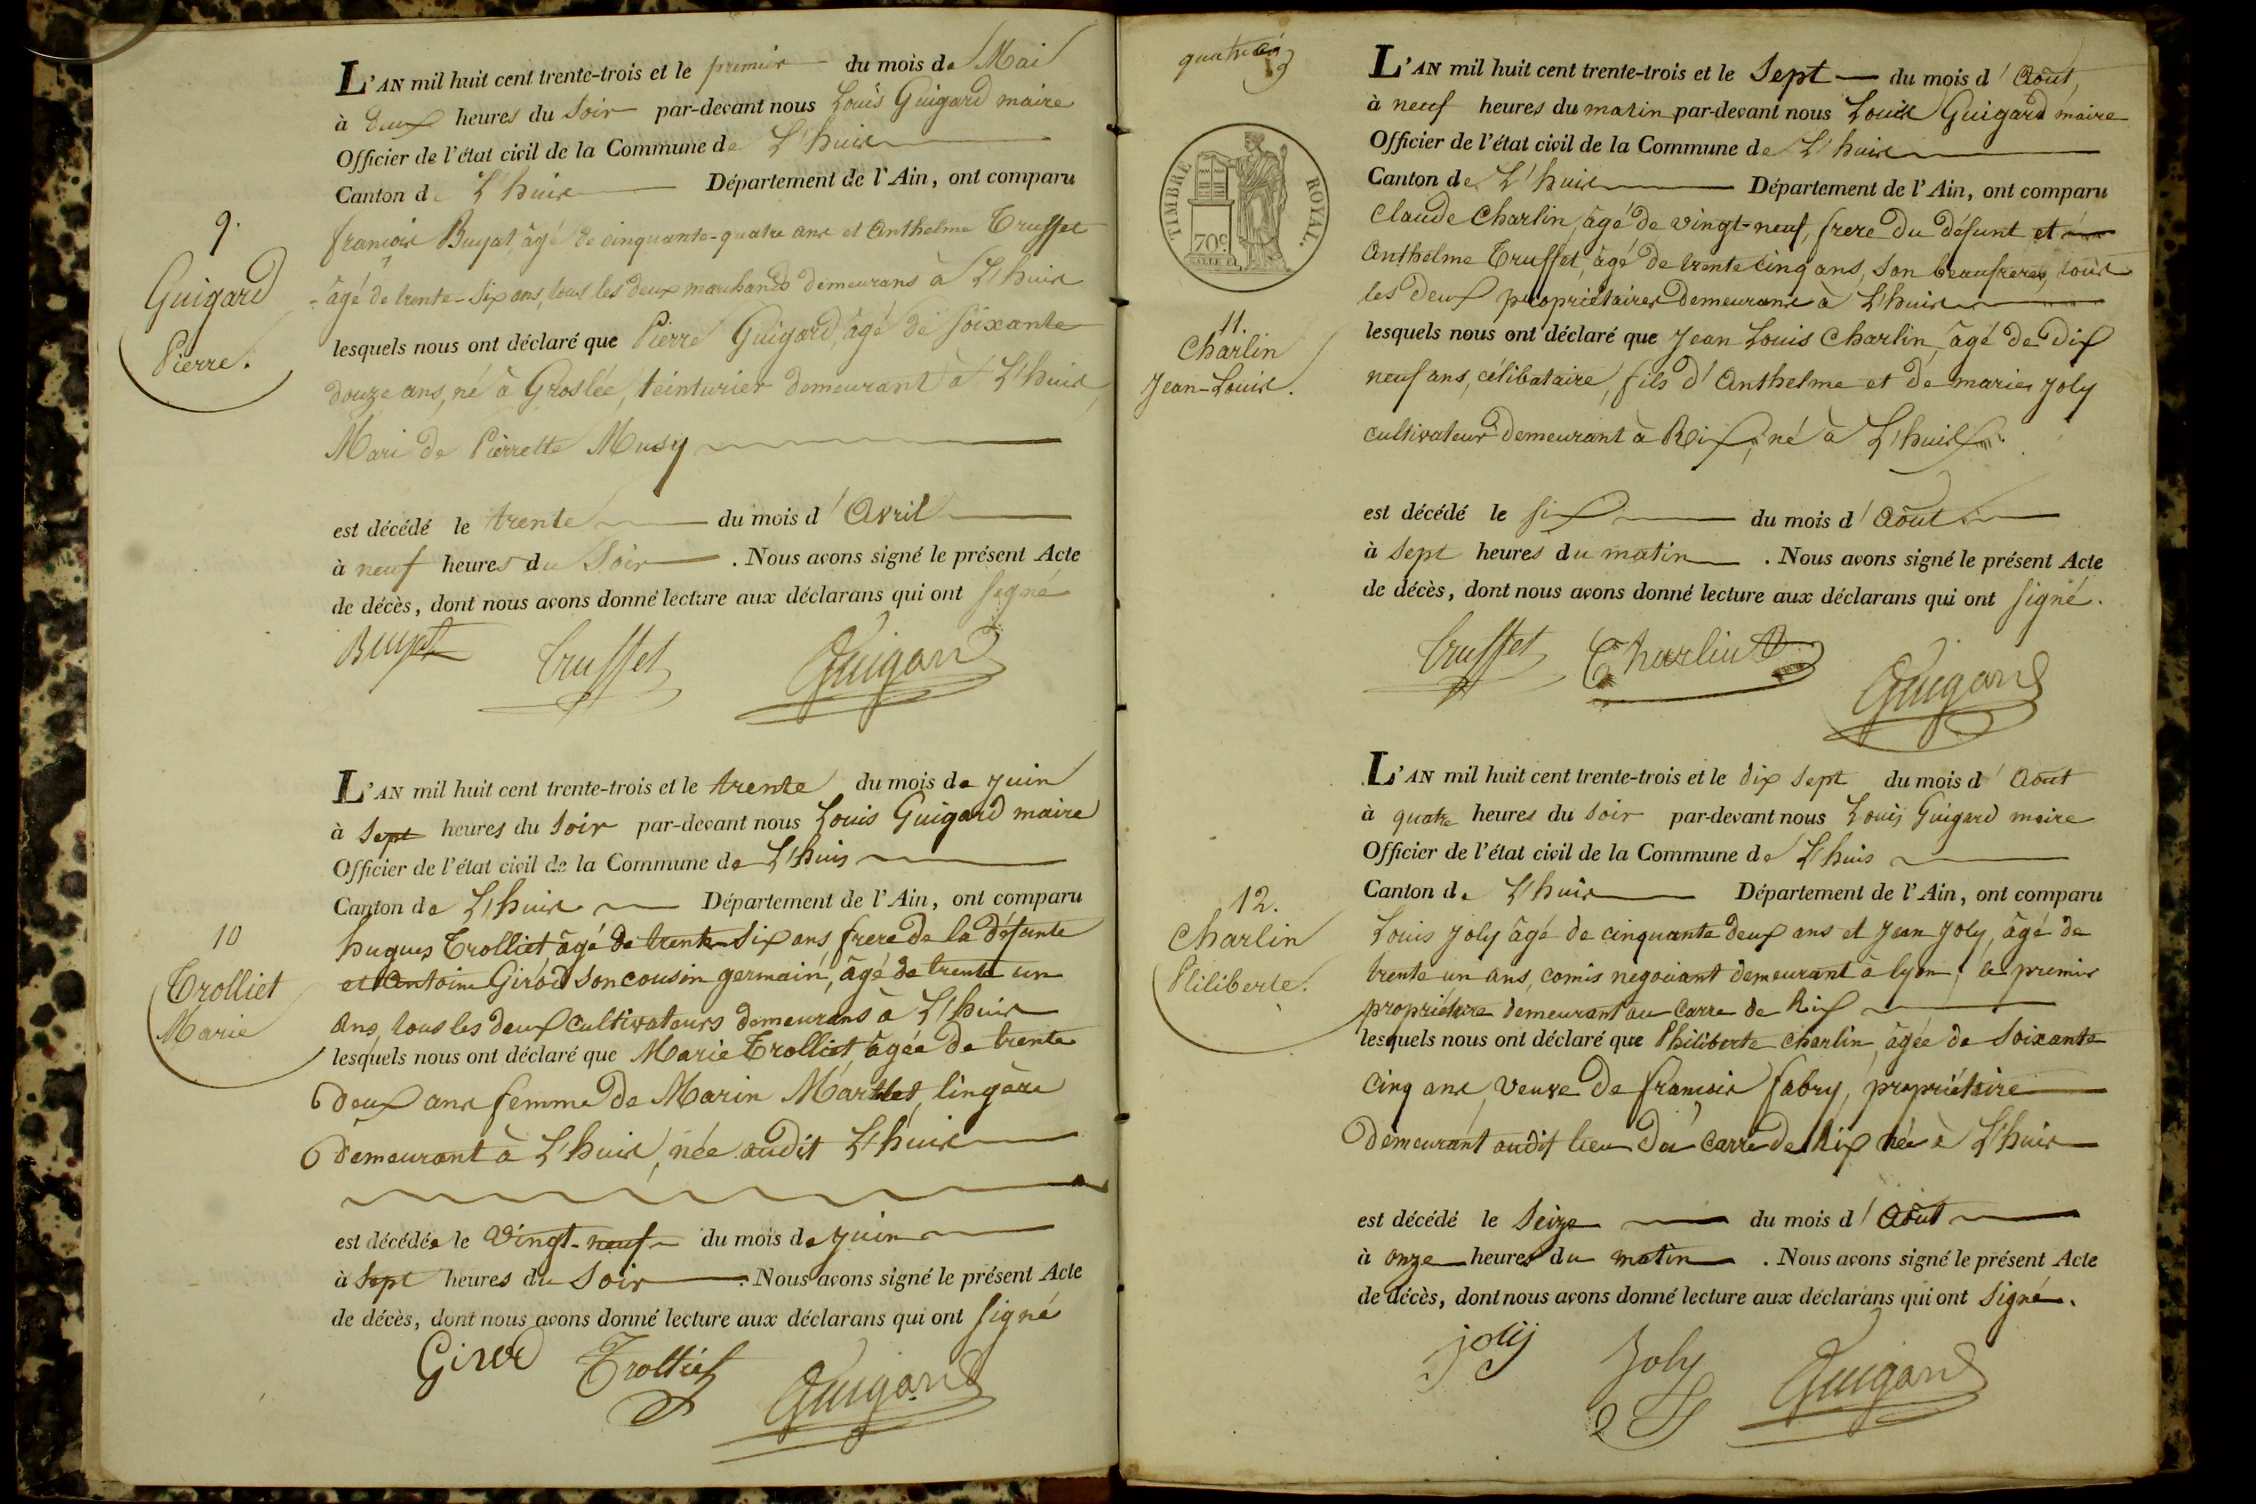 L'AN mil huit cent trente-trois et le premier du mois de Mai
à deux heures du soir par-devant nous Louis Guigard maire
Officier de l'état civil de la Commune de L'huis
Canton de L'huis Département de l'Ain, ont comparu
françois Buyat, âgé de cinquante-quatre ans et Anthelme Truffet
âgé de trente-six ans, tous les deux marchands demeurans à L'huis
lesquels nous ont déclaré que Pierre Guigard, âgé de soixante
douze ans, né à Groslée, teinturier demeurant à L'huis,
Mari de Pierrette Musy
9.
Guigard
Pierre.
est décédé le trente du mois d'Avril
à neuf heures du soir. Nous avons signé le présent Acte
de décès, dont nous avons donné lecture aux déclarans qui ont signé
Buyat Truffet Guigard
L'AN mil huit cent trente-trois et le trente du mois de juin
à sept heures du soir par-devant nous Louis Guigard maire
Officier de l'état civil de la Commune de L'huis
Canton de L'huis Département de l'Ain, ont comparu
hugues Trolliet âgé de trente-six ans frere de la défunte
et Antoine Girod son cousin germain, âgé de trente un
ans, tous les deux cultivateurs demeurans à L'huis
lesquels nous ont déclaré que Marie Trolliet âgée de trente
deux ans femme de Marin Marthet, lingère
demeurant à L'huis, née audit L'huis
10
Trolliet
Marie
est décédée le vingt-neuf du mois de juin
à sept heures du soir. Nous avons signé le présent Acte
de décès, dont nous avons donné lecture aux déclarans qui ont signé
Girod Trolliet Guigard
TIMBRE ROYAL.
70c
L'AN mil huit cent trente-trois et le sept du mois d'Août,
à neuf heures du matin par-devant nous Louis Guigard maire
Officier de l'état civil de la Commune de L'huis
Canton de L'huis Département de l'Ain, ont comparu
Claude Charlin, âgé de vingt-neuf, frere du défunt et
Anthelme Truffet, âgé de trente cinq ans, son beaufrere, tous
les deux propriétaires demeurans à L'huis
lesquels nous ont déclaré que Jean Louis Charlin, âgé de dix
neuf ans, célibataire, fils d'Anthelme et de marie Joly
cultivateur demeurant à Rix, né à L'huis
11.
Charlin
Jean-Louis.
est décédé le six du mois d'Août
à sept heures du matin. Nous avons signé le présent Acte
de décès, dont nous avons donné lecture aux déclarans qui ont signé.
Truffet Charlin Guigard
L'AN mil huit cent trente-trois et le dix sept du mois d'Août
à quatre heures du soir par-devant nous Louis Guigard maire
Officier de l'état civil de la Commune de L'huis
Canton de L'huis Département de l'Ain, ont comparu
Louis Joly âgé de cinquante deux ans et Jean Joly, âgé de
trente un ans, comis negociant demeurant à lyon, le premier
propriétaire demeurant au Carre de Rix
lesquels nous ont déclaré que Philiberte Charlin, âgée de soixante
cinq ans, veuve de françois fabry, propriétaire
demeurant audit lieu du Carre de Rix née à L'huis
12.
Charlin
Pliliberte.
est décédé le seize du mois d'Août
à onze heures du matin. Nous avons signé le présent Acte
de décès, dont nous avons donné lecture aux déclarans qui ont signé.
joly Joly Guigard